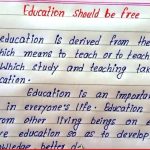 Education should be free
education is derived from the
which means to teach or to teach
Which study and teaching tak
cation.
Education is an importa
in everyone's life. Education
from other living beings on e
ve education so as to develop
owledge better